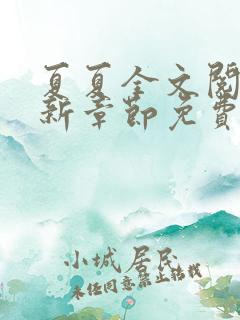 夏夏全文阅
新章节免费
小城居民
未经同意禁止转载